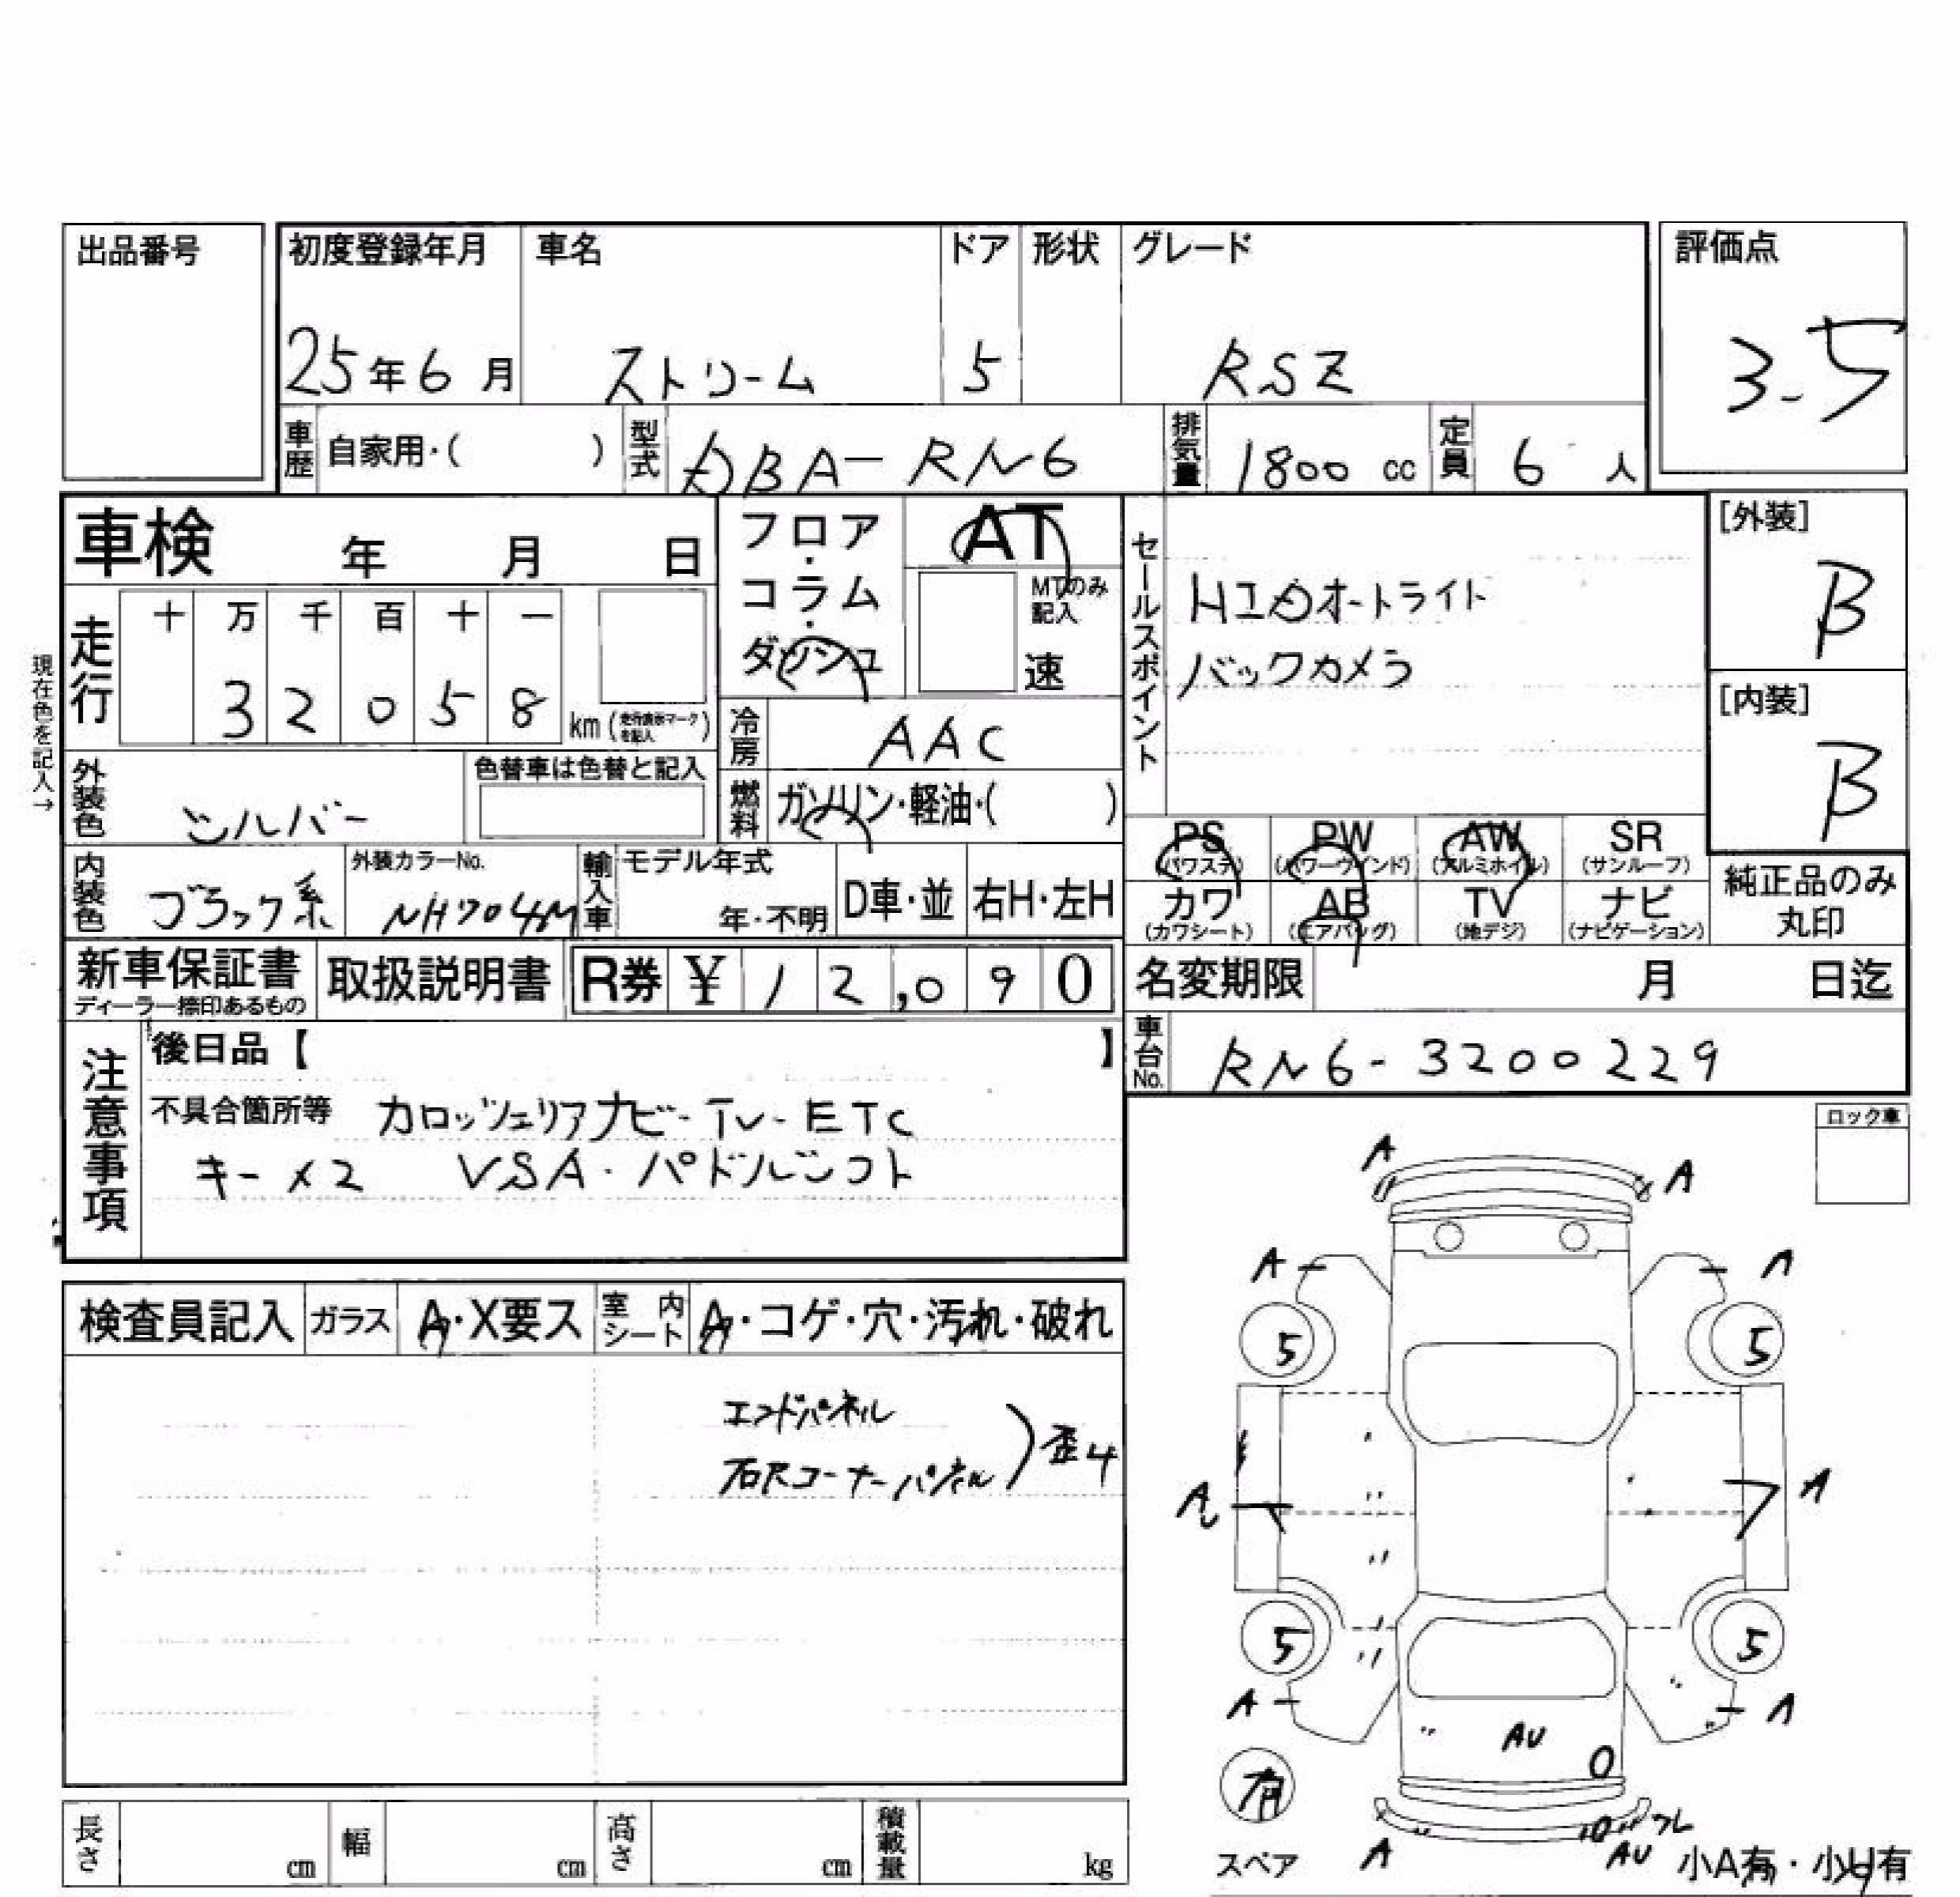 出品番号
初度登録年月 車名 ドア 形状 グレード 評価点
25年6月 ストリーム 5 RSZ 3-5
車歴 自家用・( ) 型式 DBA-RN6 排気量 1800 cc 定員 6 人
車検 年 月 日
フロア・コラム・ダッシュ
AT
MTのみ記入
速
セールスポイント
HIDオートライト
バックカメラ
[外装]
B
[内装]
B
現在色を記入→
走行 十 万 千 百 十 一
3 2 0 5 8 km (走行表示マークを記入)
冷房 AAC
外装色 シルバー 色替車は色替と記入
燃料 ガソリン・軽油・( )
PS (パワステ) PW (パワーウインド) AW (アルミホイル) SR (サンルーフ)
カワ (カワシート) AB (エアバッグ) TV (地デジ) ナビ (ナビゲーション)
純正品のみ丸印
内装色 ブラック系 外装カラーNo. NH704M 輸入車 モデル年式 年・不明 D車・並 右H・左H
新車保証書 ディーラー捺印あるもの 取扱説明書 R券 ¥ 12,090
名変期限 月 日迄
車台No. RN6-3200229
注意事項
後日品【 】
不具合箇所等 カロッツェリアナビ-TV-ETC
キー×2 VSA・パドルシフト
ロック車
検査員記入 ガラス A・X要ス 室内シート A・コゲ・穴・汚れ・破れ
エンドパネル
右尺コーナーパネル ) 歪4
A A
A A
5 5
A A
5 5
A A
AU
有
スペア
A AU
小A有・小U有
長さ cm 幅 cm 高さ cm 積載量 kg